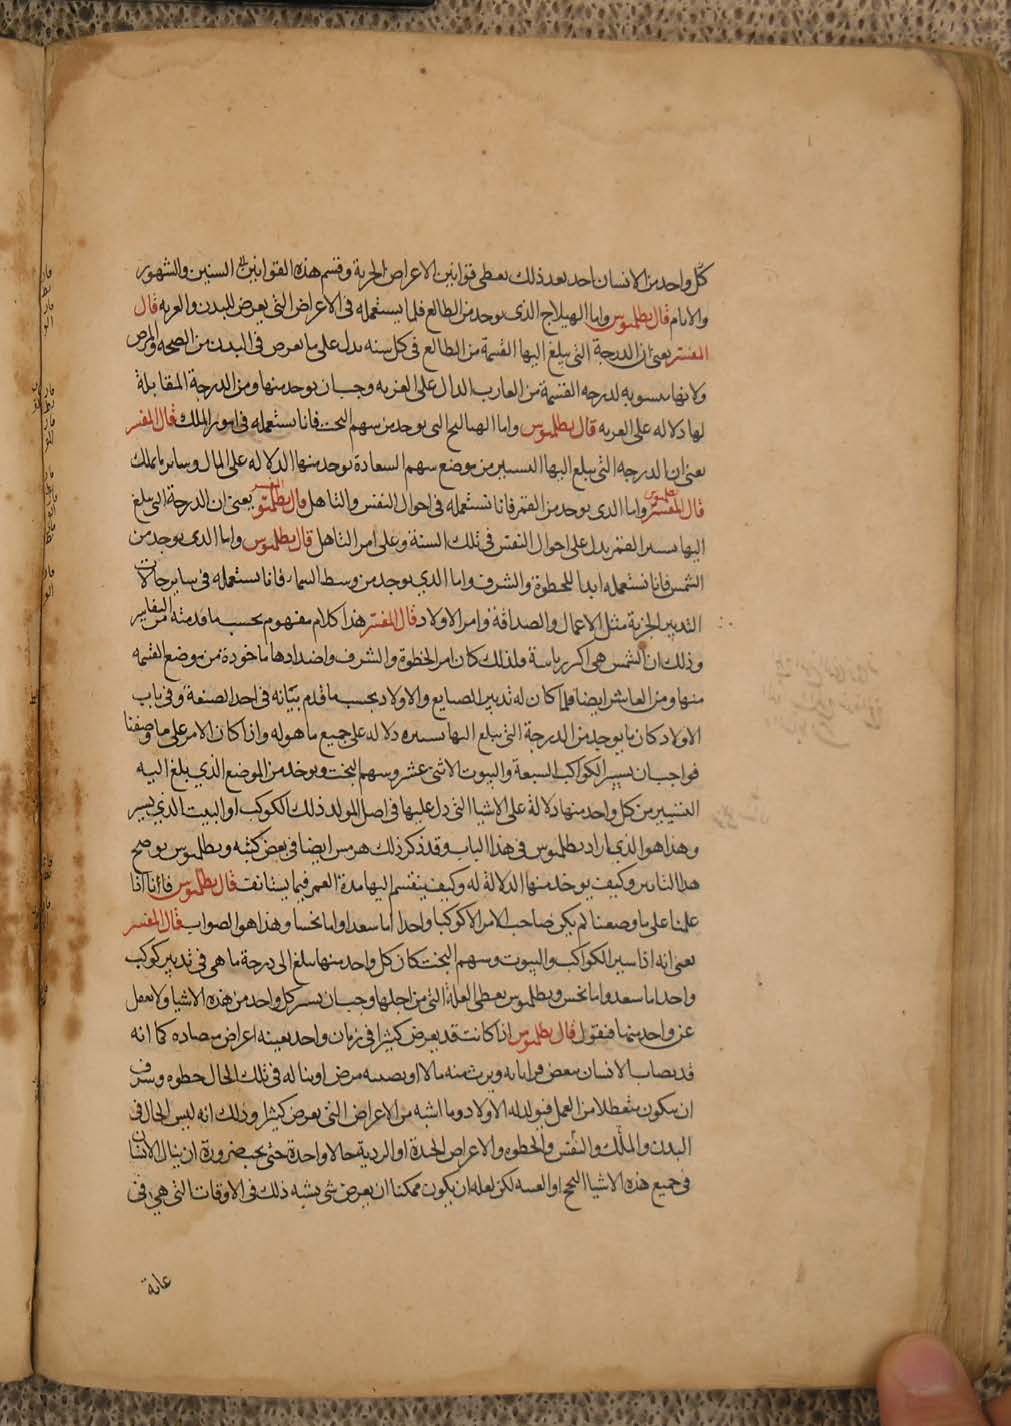 كل واحد من الانسان احد بعد ذلك يعطى قوانين الاعراض الجزية وقسم هذه القوانين الى السنين والشهور
والايام قال بطلميوس واما الهيلاج الذى يوجد من الطالع فلما يستعمله فى الاعراض التى يعرض للبدن والغربه قال
المفسر يعنى ان الدرجة التى يبلغ اليها القسمة من الطالع فى كل سنه يدل على ما يعرض فى البدن من الصحه والمرض
ولانها لدرجه القسمة من الغارب الدال على الغربه وجب ان يوجد منها ومن الدرجة المقابلة
لها دلاله على الغربه قال بطلميوس واما الهيلاج الذى يوجد من سهم البخت فانا نستعمله فى امور الملك قال المفسر
يعنى ان الدرجه التى يبلغ اليها التسيير من موضع سهم السعادة يوجد منها الدلاله على المال وساير ما يملك
قال بطلميوس واما الذى يوجد من القمر فانا نستعمله فى احوال النفس والتاهل قال المفسر يعنى ان الدرجة التى يبلغ
اليها تسيير القمر يدل على احوال النفس فى تلك السنة وعلى امر التاهل قال بطلميوس واما الذى يوجد من
الشمس فانا نستعمله ابدا للحظوة والشرف واما الذى يوجد من وسط السماء فانا نستعمله فى ساير حالات
التدبير الجزية مثل الاعمال والصداقة وامر الاولاد قال المفسر هذا كلام مفهوم بحسب ما قدمته من التفاسير
وذلك ان الشمس هى اكثر رياسة ولذلك كان امر الحظوة والشرف واضدادها ماخوذة من موضع القسمه
منها ومن العاشر ايضا فلما كان له تدبير الصنايع والاولاد بحسب ما قدم بيانه فى احد الصنعة وفى باب
الاولاد كان ما يوجد من الدرجة التى يبلغ اليها تسييره دلاله على جميع ما هو له واذا كان الامر على ما وصفنا
فواجب ان يسير الكواكب السبعة والبيوت الاثنى عشر وسهم البخت ويوخذ من الموضع الذى يبلغ اليه
التسيير من كل واحد منها دلالة على الاشيا التى دل عليها فى اصل المولد ذلك الكوكب او البيت الذى يسير
وهذا هو الذى اراد بطلميوس فى هذا الباب وقد ذكر ذلك هرمس ايضا فى بعض كتبه وبطلميوس يوضح
هذا وكيف يوخد منها الدلالة له وكيف ينقسم اليها مدة العمر فيما يستانف قال بطلميوس فانا اذا
علمنا على ما وصفنا لم يكن صاحب الامر الا كوكبا واحدا اما سعدا واما نحسا وهذا هو الصواب قال المفسر
يعنى انه اذا سير الكواكب والبيوت وسهم البخت كان كل واحد منها يبلغ الى درجة ما هى فى تدبير كوكب
واحد اما سعد واما نحس وبطلميوس يعطى العلة التى من اجلها وجب ان يسير كل واحد من هذه الاشيا ولا يغفل
عن واحد منها فيقول قال بطلميوس اذ كانت قد يعرض كثيرا فى زمان واحد بعينه اعراض متضاده كما انه
قد يصاب الانسان ببعض قراباته ويرث منه مالا او يصيبه مرض او يناله فى تلك الحال حظوه وشرف
ان يكون متعطلا من العمل فيولد له الاولاد وما اشبه من الاعراض التى يعرض كثيرا وذلك انه ليس الحال فى
البدن والملك والنفس والحظوه والاعراض الجيدة او الردية حالا واحدة حتى يجب ضرورة ان ينال الانسان
فى جميع هذه الاشيا لكن لعله ان يكون ممكنا ان يعرض شى يشبه ذلك فى الاوقات التى هى فى
غاية